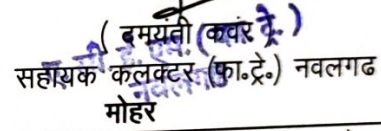 ( दमयंती कवंर )
सहायक कलक्टर (फा०ट्रे०) नवलगढ
मोहर